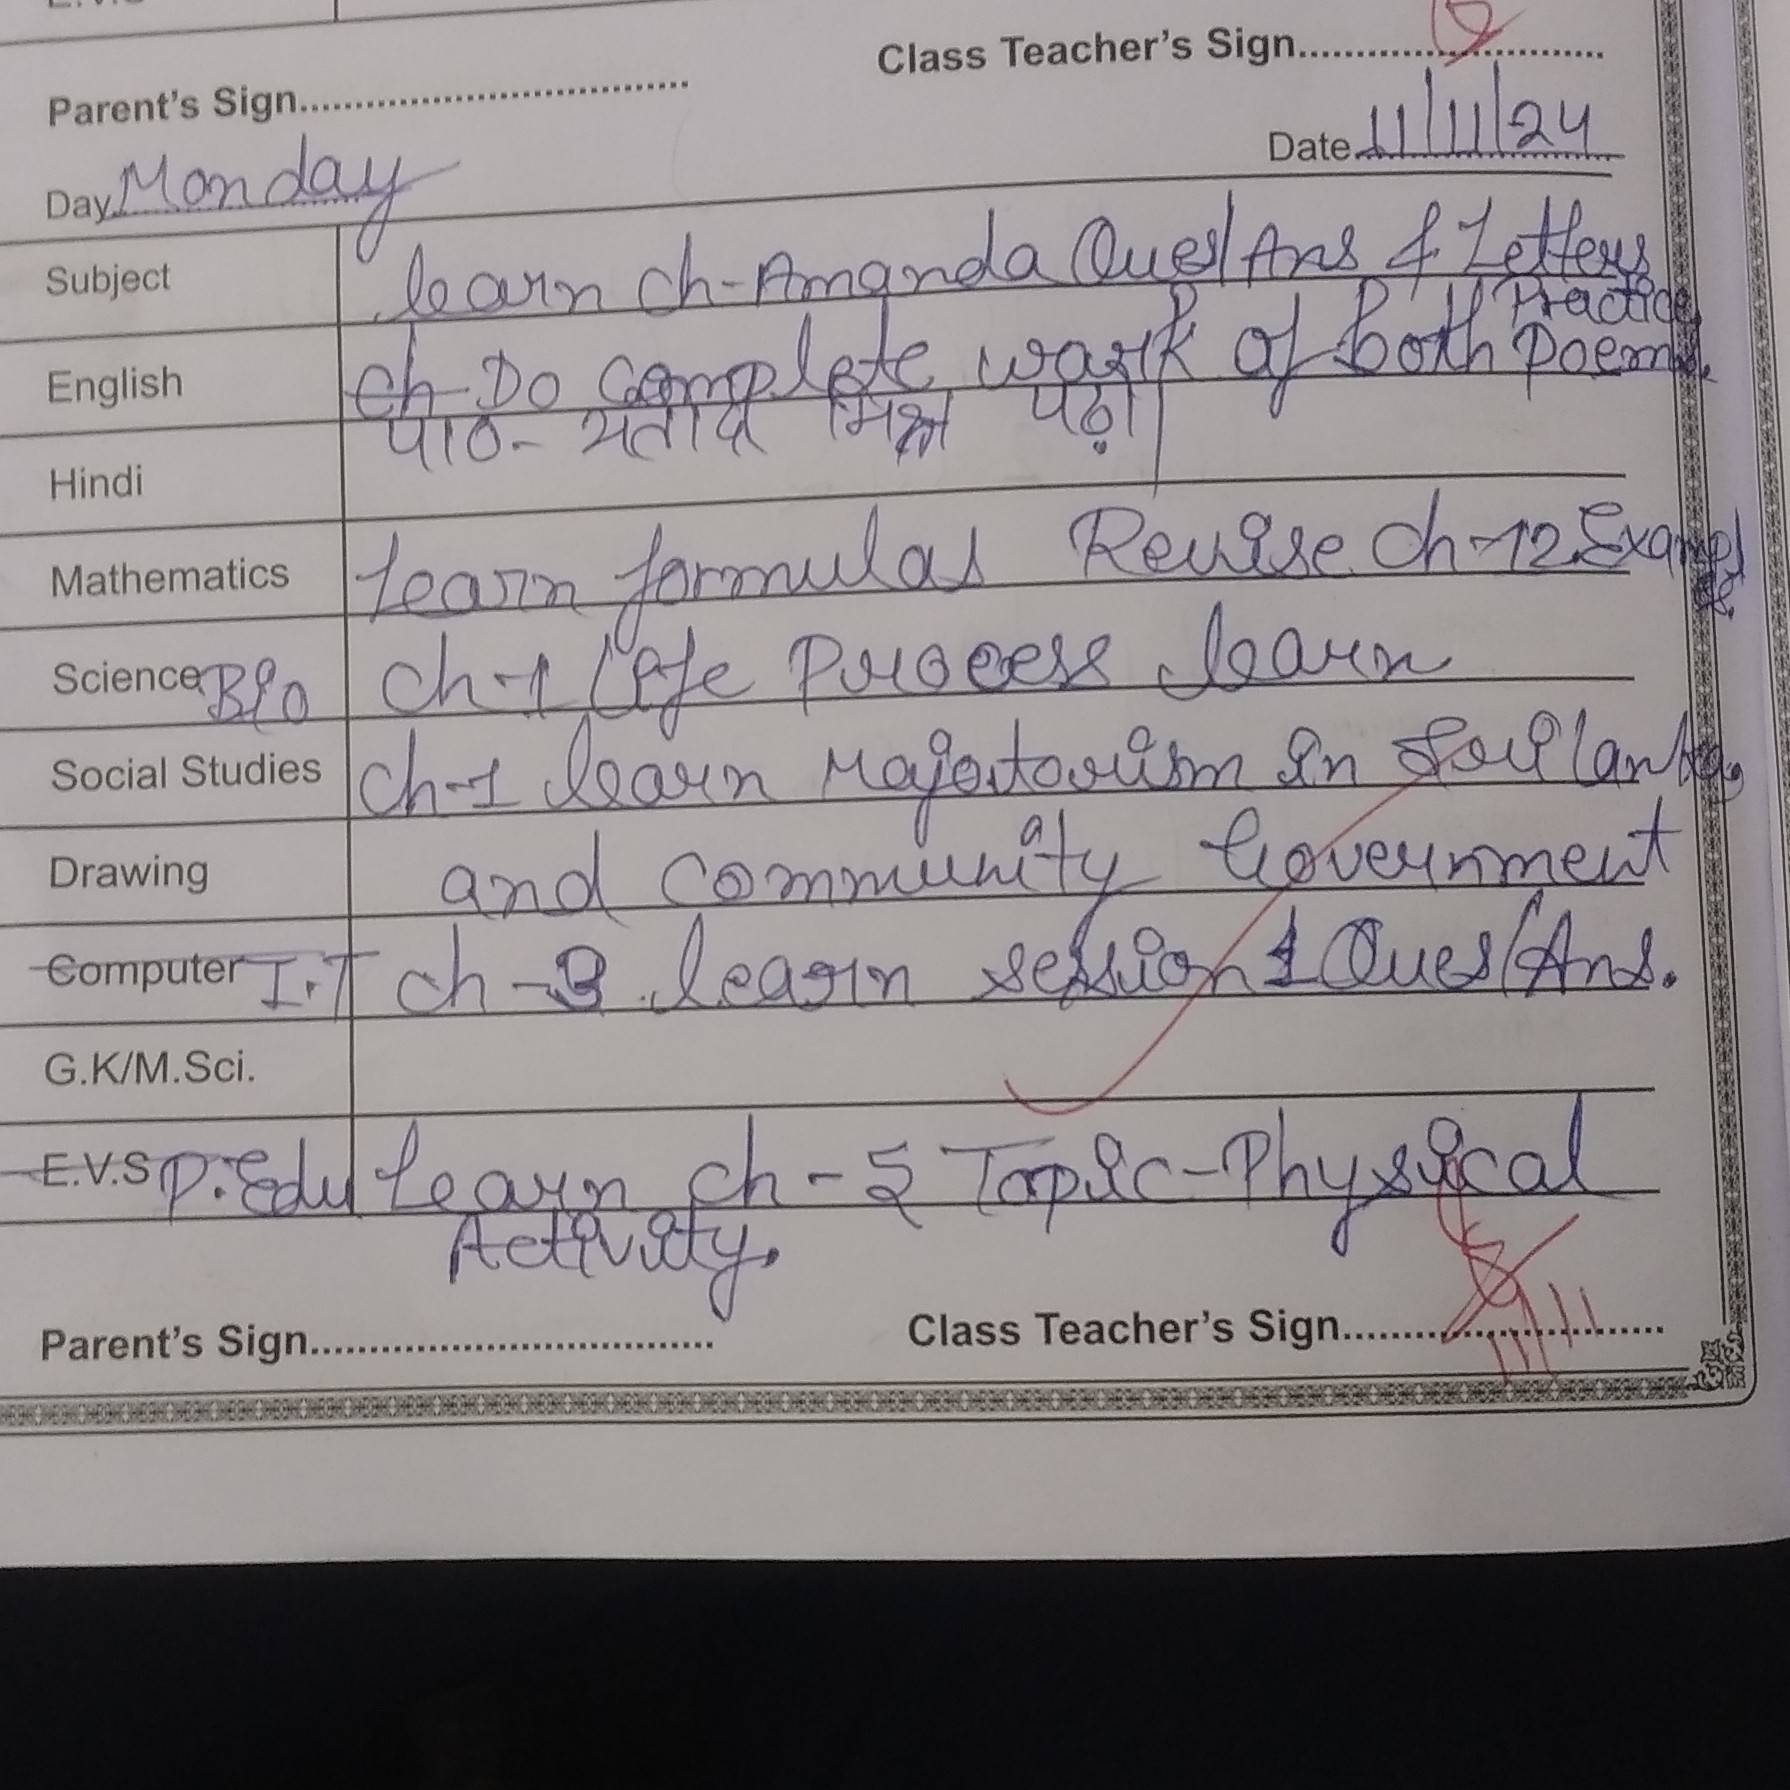 Class Teacher's Sign
Parent's Sign
Date 11/11/24
Day Monday
Subject learn ch-Amanda Ques/Ans & Letters
Practice
English ch-Do complete work of both Poem
Hindi पाठ- मिश्र पढ़ा
Mathematics Learn formulas Revise ch-12 Exampl
es.
Science Bio ch-1 Life Process learn
Social Studies ch-1 learn Majortorism in
Drawing and community Government
Computer I.T ch-3 learn session 1 Ques/Ans.
G.K/M.Sci.
E.V.S P.Edu Learn ch-5 Topic-Physical
Activity.
Parent's Sign Class Teacher's Sign
11/11